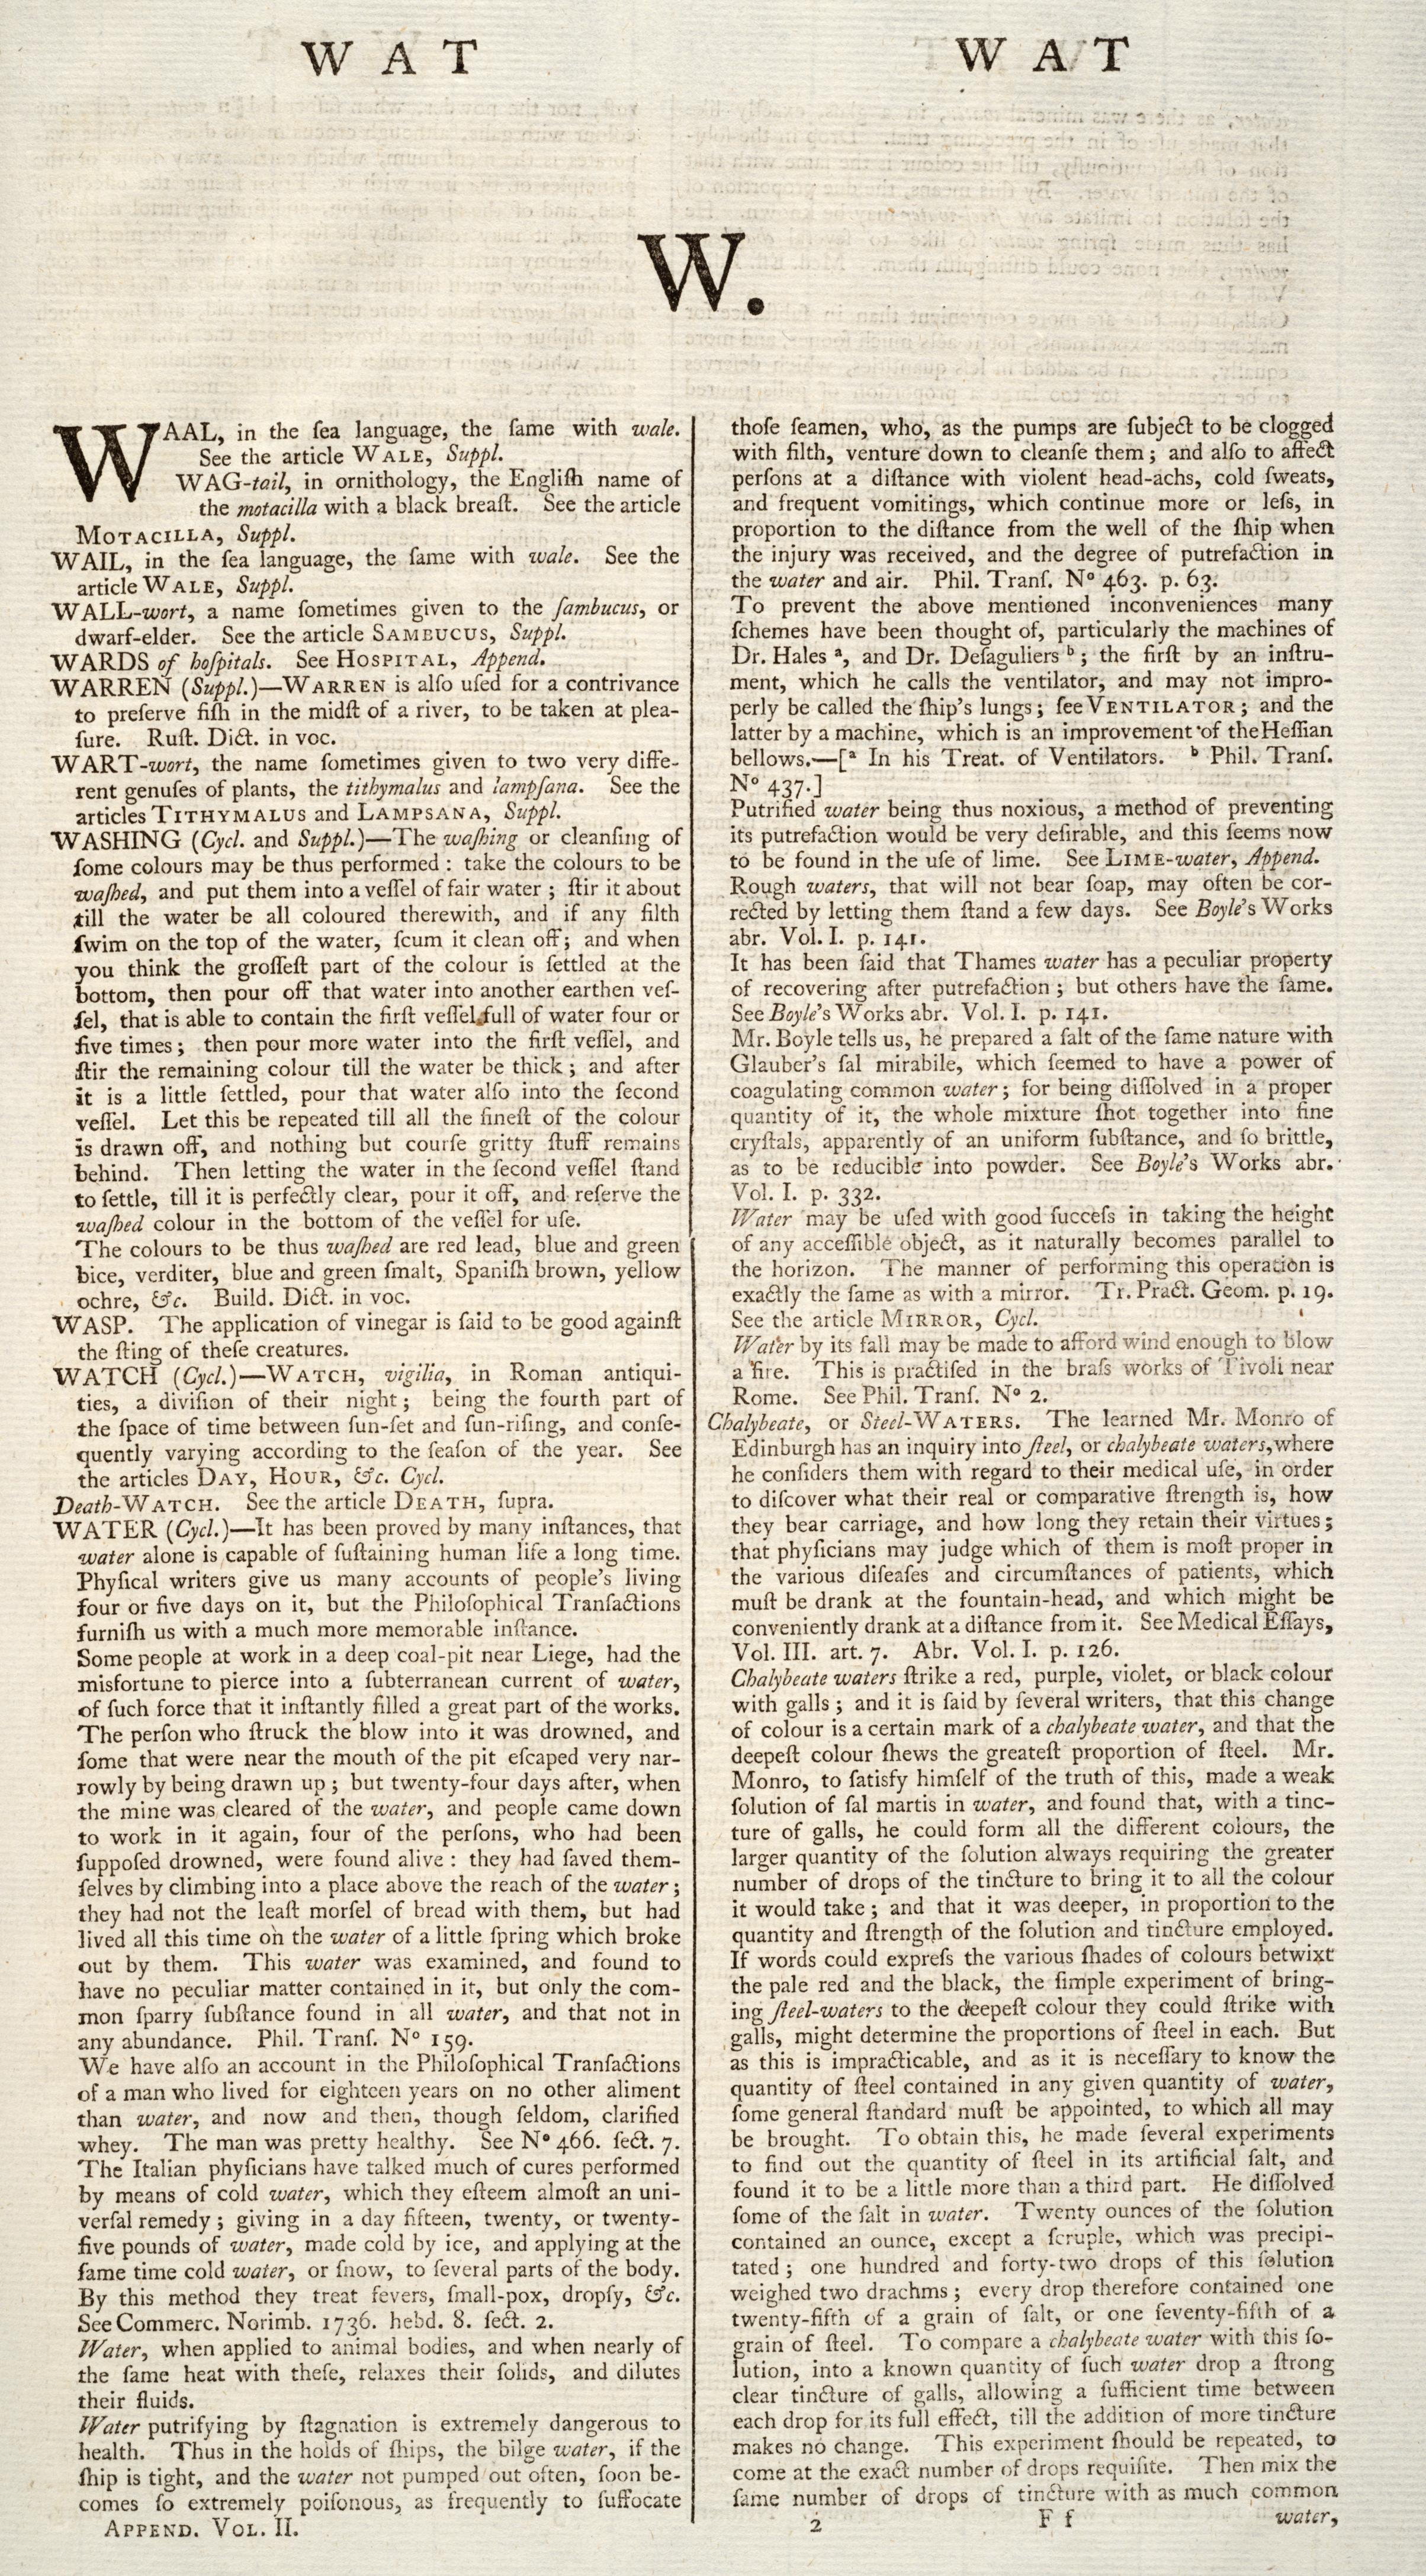 W A T
W A T
W.
WAAL, in the ſea language, the ſame with wale.
See the article WALE, Suppl.
WAG-tail, in ornithology, the Engliſh name of
the motacilla with a black breaſt. See the article
MOTACILLA, Suppl.
WAIL, in the ſea language, the ſame with wale. See the
article WALE, Suppl.
WALL-wort, a name ſometimes given to the ſambucus, or
dwarf-elder. See the article SAMBUCUS, Suppl.
WARDS of hoſpitals. See HOSPITAL, Append.
WARREN (Suppl.)—WARREN is alſo uſed for a contrivance
to preſerve fiſh in the midſt of a river, to be taken at plea-
ſure. Ruſt. Dict. in voc.
WART-wort, the name ſometimes given to two very diffe-
rent genuſes of plants, the tithymalus and lampſana. See the
articles TITHYMALUS and LAMPSANA, Suppl.
WASHING (Cycl. and Suppl.)—The waſhing or cleanſing of
ſome colours may be thus performed: take the colours to be
waſhed, and put them into a veſſel of fair water; ſtir it about
till the water be all coloured therewith, and if any filth
ſwim on the top of the water, ſcum it clean off; and when
you think the groſſeſt part of the colour is ſettled at the
bottom, then pour off that water into another earthen veſ-
ſel, that is able to contain the firſt veſſel full of water four or
five times; then pour more water into the firſt veſſel, and
ſtir the remaining colour till the water be thick; and after
it is a little ſettled, pour that water alſo into the ſecond
veſſel. Let this be repeated till all the fineſt of the colour
is drawn off, and nothing but courſe gritty ſtuff remains
behind. Then letting the water in the ſecond veſſel ſtand
to ſettle, till it is perfectly clear, pour it off, and reſerve the
waſhed colour in the bottom of the veſſel for uſe.
The colours to be thus waſhed are red lead, blue and green
bice, verditer, blue and green ſmalt, Spaniſh brown, yellow
ochre, &c. Build. Dict. in voc.
WASP. The application of vinegar is ſaid to be good againſt
the ſting of theſe creatures.
WATCH (Cycl.)—WATCH, vigilia, in Roman antiqui-
ties, a diviſion of their night; being the fourth part of
the ſpace of time between ſun-ſet and ſun-riſing, and conſe-
quently varying according to the ſeaſon of the year. See
the articles DAY, HOUR, &c. Cycl.
Death-WATCH. See the article DEATH, ſupra.
WATER (Cycl.)—It has been proved by many inſtances, that
water alone is capable of ſuſtaining human life a long time.
Phyſical writers give us many accounts of people's living
four or five days on it, but the Philoſophical Tranſactions
furniſh us with a much more memorable inſtance.
Some people at work in a deep coal-pit near Liege, had the
misfortune to pierce into a ſubterranean current of water,
of ſuch force that it inſtantly filled a great part of the works.
The perſon who ſtruck the blow into it was drowned, and
ſome that were near the mouth of the pit eſcaped very nar-
rowly by being drawn up; but twenty-four days after, when
the mine was cleared of the water, and people came down
to work in it again, four of the perſons, who had been
ſuppoſed drowned, were found alive: they had ſaved them-
ſelves by climbing into a place above the reach of the water;
they had not the leaſt morſel of bread with them, but had
lived all this time on the water of a little ſpring which broke
out by them. This water was examined, and found to
have no peculiar matter contained in it, but only the com-
mon ſparry ſubſtance found in all water, and that not in
any abundance. Phil. Tranſ. Nº 159.
We have alſo an account in the Philoſophical Tranſactions
of a man who lived for eighteen years on no other aliment
than water, and now and then, though ſeldom, clarified
whey. The man was pretty healthy. See Nº 466. ſect. 7.
The Italian phyſicians have talked much of cures performed
by means of cold water, which they eſteem almoſt an uni-
verſal remedy; giving in a day fifteen, twenty, or twenty-
five pounds of water, made cold by ice, and applying at the
ſame time cold water, or ſnow, to ſeveral parts of the body.
By this method they treat fevers, ſmall-pox, dropſy, &c.
See Commerc. Norimb. 1736. hebd. 8. ſect. 2.
Water, when applied to animal bodies, and when nearly of
the ſame heat with theſe, relaxes their ſolids, and dilutes
their fluids.
Water putrifying by ſtagnation is extremely dangerous to
health. Thus in the holds of ſhips, the bilge water, if the
ſhip is tight, and the water not pumped out often, ſoon be-
comes ſo extremely poiſonous, as frequently to ſuffocate
APPEND. VOL. II.
thoſe ſeamen, who, as the pumps are ſubject to be clogged
with filth, venture down to cleanſe them; and alſo to affect
perſons at a diſtance with violent head-achs, cold ſweats,
and frequent vomitings, which continue more or leſs, in
proportion to the diſtance from the well of the ſhip when
the injury was received, and the degree of putrefaction in
the water and air. Phil. Tranſ. Nº 463. p. 63.
To prevent the above mentioned inconveniences many
ſchemes have been thought of, particularly the machines of
Dr. Hales ª, and Dr. Deſaguliers ᵇ; the firſt by an inſtru-
ment, which he calls the ventilator, and may not impro-
perly be called the ſhip's lungs; ſee VENTILATOR; and the
latter by a machine, which is an improvement of the Heſſian
bellows.—[ª In his Treat. of Ventilators. ᵇ Phil. Tranſ.
Nº 437.]
Putrified water being thus noxious, a method of preventing
its putrefaction would be very deſirable, and this ſeems now
to be found in the uſe of lime. See LIME-water, Append.
Rough waters, that will not bear ſoap, may often be cor-
rected by letting them ſtand a few days. See Boyle's Works
abr. Vol. I. p. 141.
It has been ſaid that Thames water has a peculiar property
of recovering after putrefaction; but others have the ſame.
See Boyle's Works abr. Vol. I. p. 141.
Mr. Boyle tells us, he prepared a ſalt of the ſame nature with
Glauber's ſal mirabile, which ſeemed to have a power of
coagulating common water; for being diſſolved in a proper
quantity of it, the whole mixture ſhot together into fine
cryſtals, apparently of an uniform ſubſtance, and ſo brittle,
as to be reducible into powder. See Boyle's Works abr.
Vol. I. p. 332.
Water may be uſed with good ſucceſs in taking the height
of any acceſſible object, as it naturally becomes parallel to
the horizon. The manner of performing this operation is
exactly the ſame as with a mirror. Tr. Pract. Geom. p. 19.
See the article MIRROR, Cycl.
Water by its fall may be made to afford wind enough to blow
a fire. This is practiſed in the braſs works of Tivoli near
Rome. See Phil. Tranſ. Nº 2.
Chalybeate, or Steel-WATERS. The learned Mr. Monro of
Edinburgh has an inquiry into ſteel, or chalybeate waters, where
he conſiders them with regard to their medical uſe, in order
to diſcover what their real or comparative ſtrength is, how
they bear carriage, and how long they retain their virtues;
that phyſicians may judge which of them is moſt proper in
the various diſeaſes and circumſtances of patients, which
muſt be drank at the fountain-head, and which might be
conveniently drank at a diſtance from it. See Medical Eſſays,
Vol. III. art. 7. Abr. Vol. I. p. 126.
Chalybeate waters ſtrike a red, purple, violet, or black colour
with galls; and it is ſaid by ſeveral writers, that this change
of colour is a certain mark of a chalybeate water, and that the
deepeſt colour ſhews the greateſt proportion of ſteel. Mr.
Monro, to ſatisfy himſelf of the truth of this, made a weak
ſolution of ſal martis in water, and found that, with a tinc-
ture of galls, he could form all the different colours, the
larger quantity of the ſolution always requiring the greater
number of drops of the tincture to bring it to all the colour
it would take; and that it was deeper, in proportion to the
quantity and ſtrength of the ſolution and tincture employed.
If words could expreſs the various ſhades of colours betwixt
the pale red and the black, the ſimple experiment of bring-
ing ſteel-waters to the deepeſt colour they could ſtrike with
galls, might determine the proportions of ſteel in each. But
as this is impracticable, and as it is neceſſary to know the
quantity of ſteel contained in any given quantity of water,
ſome general ſtandard muſt be appointed, to which all may
be brought. To obtain this, he made ſeveral experiments
to find out the quantity of ſteel in its artificial ſalt, and
found it to be a little more than a third part. He diſſolved
ſome of the ſalt in water. Twenty ounces of the ſolution
contained an ounce, except a ſcruple, which was precipi-
tated; one hundred and forty-two drops of this ſolution
weighed two drachms; every drop therefore contained one
twenty-fifth of a grain of ſalt, or one ſeventy-fifth of a
grain of ſteel. To compare a chalybeate water with this ſo-
lution, into a known quantity of ſuch water drop a ſtrong
clear tincture of galls, allowing a ſufficient time between
each drop for its full effect, till the addition of more tincture
makes no change. This experiment ſhould be repeated, to
come at the exact number of drops requiſite. Then mix the
ſame number of drops of tincture with as much common
2 F f water,